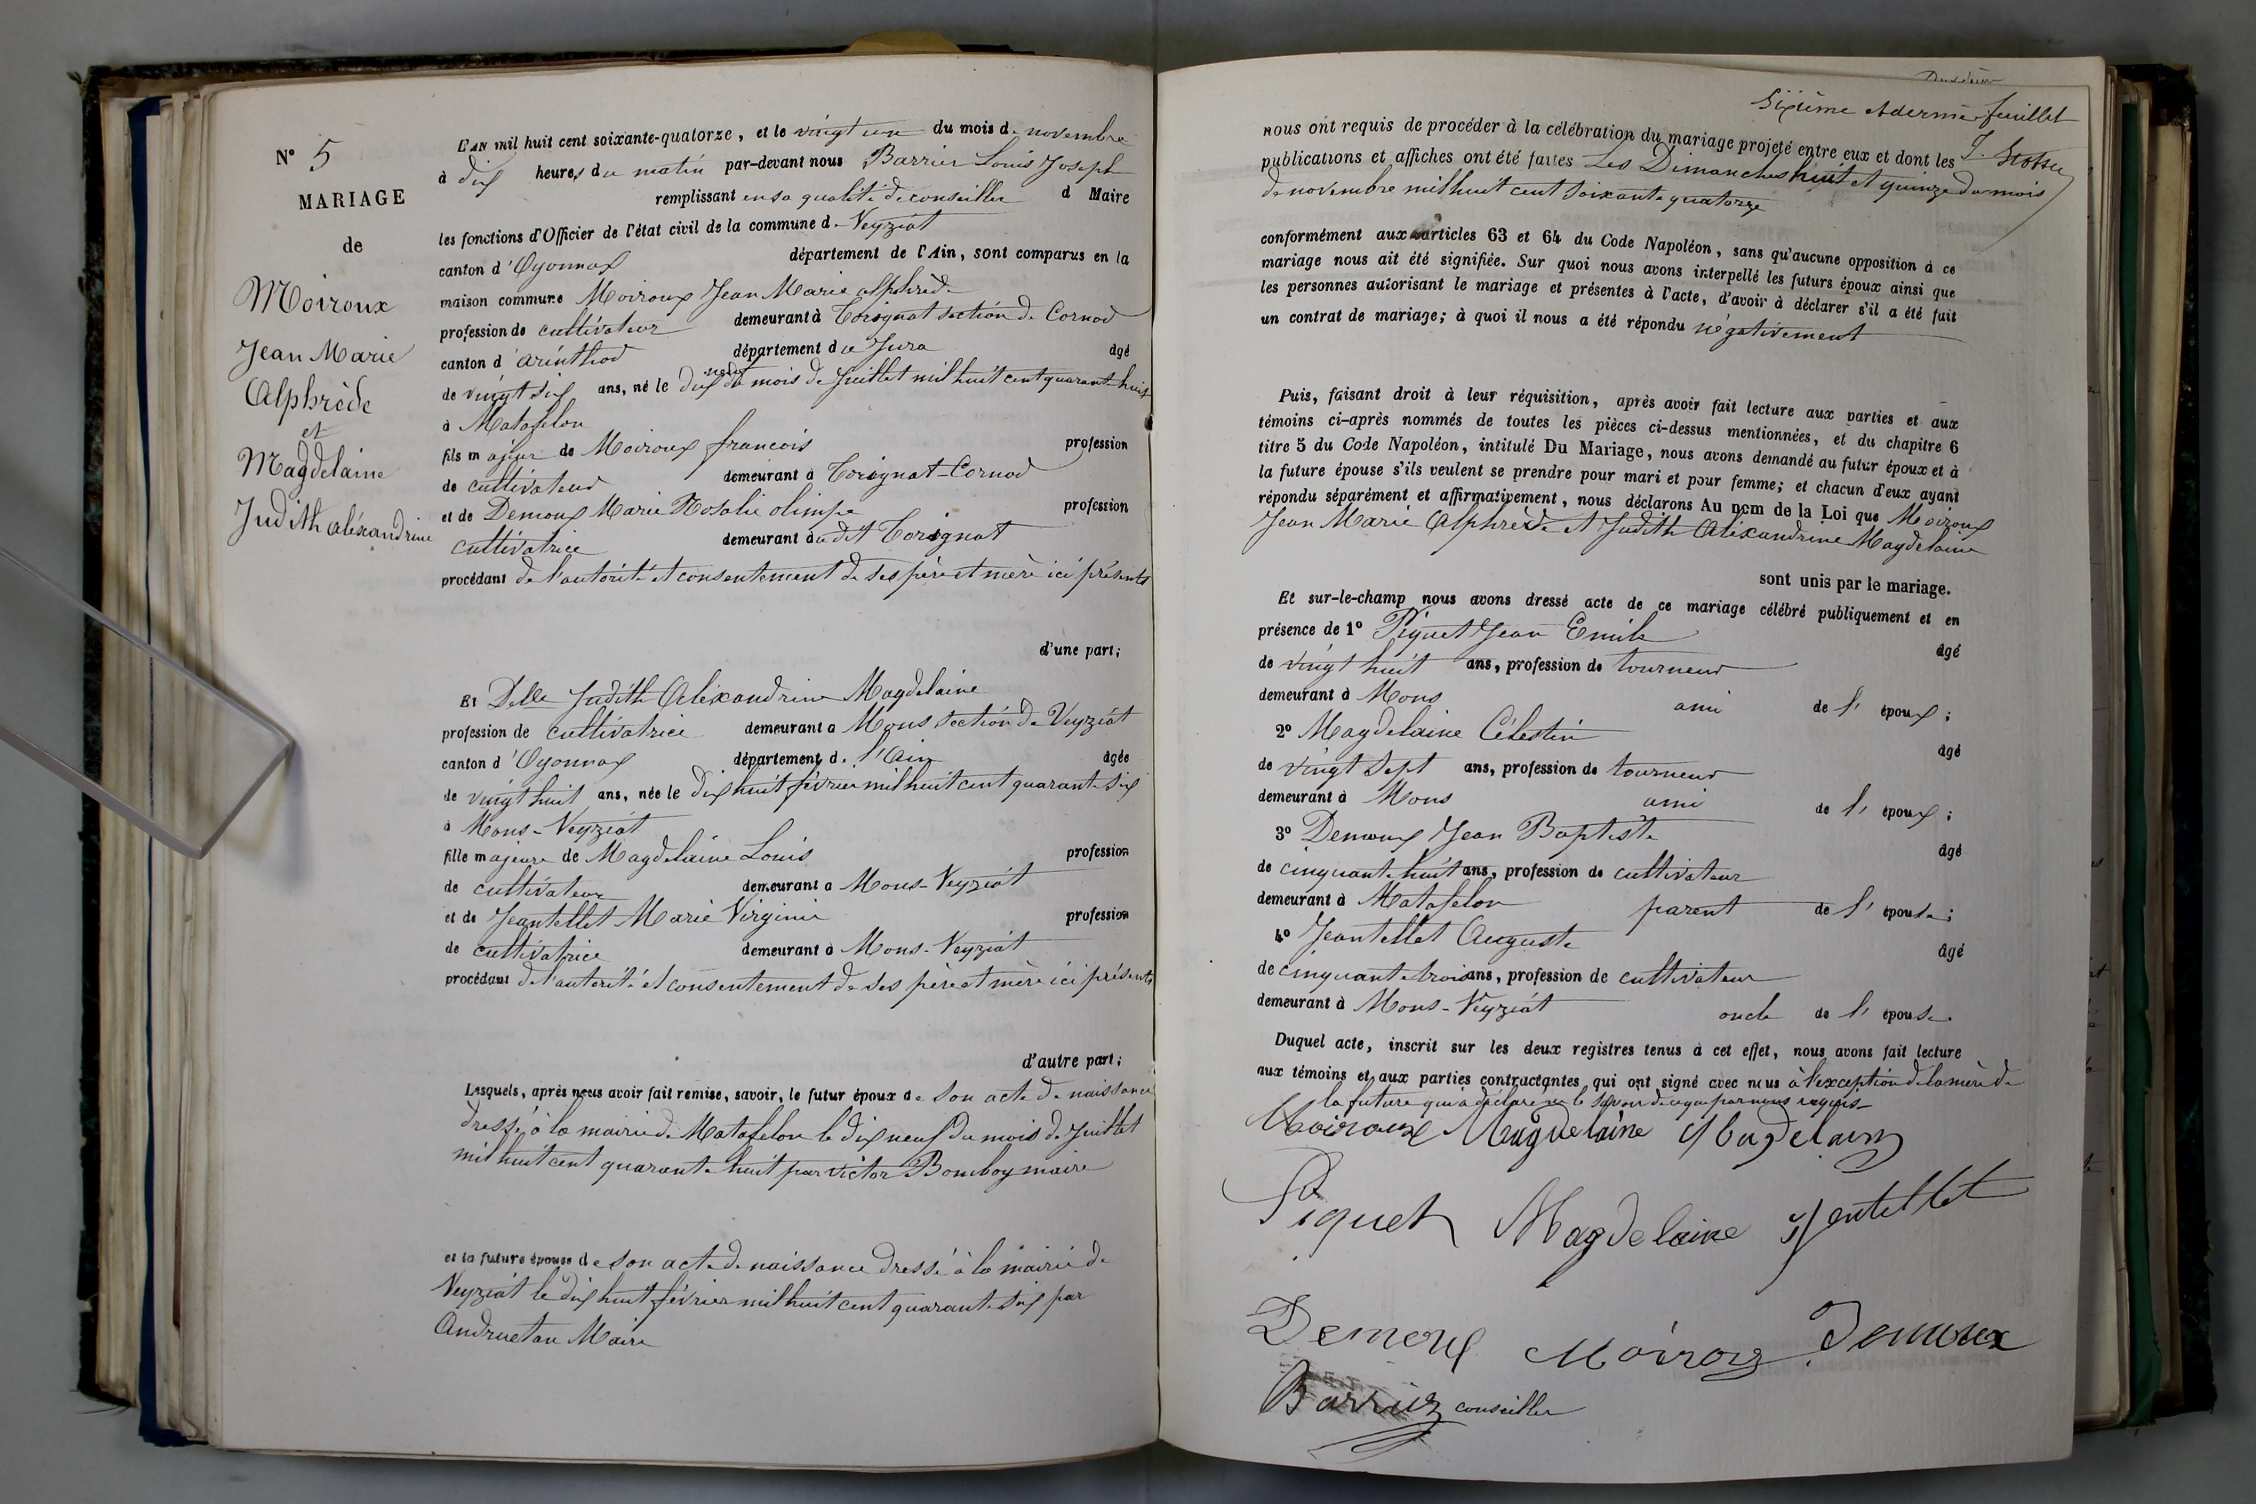 N° 5
MARIAGE
de
Moiroux
Jean Marie
Alphrède
et
Magdelaine
Judith aléxandrine
L'AN mil huit cent soixante-quatorze, et le vingt un du mois de novembre
à dix heures du matin par-devant nous Barrier Louis Joseph
remplissant en sa qualité de conseiller d Maire
les fonctions d'Officier de l'état civil de la commune de Veyziat
canton d'Oyonnax département de l'Ain, sont comparus en la
maison commune Moiroux Jean Marie alphrède
profession de cultivateur demeurant à Thoirignat section de Cornod
canton d'arinthod département du Jura âgé
de vingt six ans, né le dix neuf du mois de Juillet mil huit cent quarante huit
à Matafelon
fils majeur de Moiroux francois profession
de cultivateur demeurant à Torignat-Cornod
et de Demoux Marie Rosalie olimpe profession
cultivatrice demeurant audit Torignat
procédant de l'autorité et consentement de ses père et mère ici présents
d'une part;
Et Delle Judith Aléxandrine Magdelaine
profession de cultivatrice demeurant a Mons section de Veyziat
canton d'Oyonnax département de l'Ain âgée
de vingt huit ans, née le dix huit février mil huit cent quarante six
à Mons-Veyziat
fille majeure de Magdelaine Louis profession
de cultivateur demeurant a Mons-Veyziat
et de Jeantellet Marie Virginie profession
de cultivatrice demeurant à Mons-Veyziat
procédant de l'autorité et consentement de ses père et mère ici présents
d'autre part;
Lesquels, après nous avoir fait remise, savoir, le futur époux de son acte de naissance
dressé à la mairie de Matafelon le dix neuf du mois de Juillet
mil huit cent quarante huit par victor Bomboy maire
et la future épouse de son acte de naissance dressé à la mairie de
Veyziat le dix huit février mil huit cent quarante six par
Andruetan Maire
Sixième et dernier feuillet
nous ont requis de procéder à la célébration du mariage projeté entre eux et dont les
publications et affiches ont été faites Les Dimanches huit et quinze du mois
de novembre mil huit cent soixante quatorze
conformément aux articles 63 et 64 du Code Napoléon, sans qu'aucune opposition à ce
mariage nous ait été signifiée. Sur quoi nous avons interpellé les futurs époux ainsi que
les personnes autorisant le mariage et présentes à l'acte, d'avoir à déclarer s'il a été fait
un contrat de mariage; à quoi il nous a été répondu négativement
Puis, faisant droit à leur réquisition, après avoir fait lecture aux parties et aux
témoins ci-après nommés de toutes les pièces ci-dessus mentionnées, et du chapitre 6
titre 5 du Code Napoléon, intitulé Du Mariage, nous avons demandé au futur époux et à
la future épouse s'ils veulent se prendre pour mari et pour femme; et chacun d'eux ayant
répondu séparément et affirmativement, nous déclarons Au nom de la Loi que Moiroux
Jean Marie Alphrède et Judith Aléxandrine Magdelaine
sont unis par le mariage.
Et sur-le-champ nous avons dressé acte de ce mariage célébré publiquement et en
présence de 1° Piquet Jean Emile âgé
de vingt huit ans, profession de tourneur
demeurant à Mons ami de l'époux;
2° Magdelaine Célestin âgé
de vingt sept ans, profession de tourneur
demeurant à Mons ami de l'époux;
3° Demoux Jean Baptiste âgé
de cinquante huit ans, profession de cultivateur
demeurant à Matafelon parent de l'épouse;
4° Jeantellet Auguste âgé
de cinquante trois ans, profession de cultivateur
demeurant à Mons-Veyziat oncle de l'épouse
Duquel acte, inscrit sur les deux registres tenus à cet effet, nous avons fait lecture
aux témoins et aux parties contractantes qui ont signé avec nous à l'exception de la mère de
la future qui a déclaré ne le savoir de ce que par nous requis
Moiroux Magdelaine Magdelain
Piquet Magdelaine Jentellet
Demoux Moiroux Demoux
Barrier conseiller